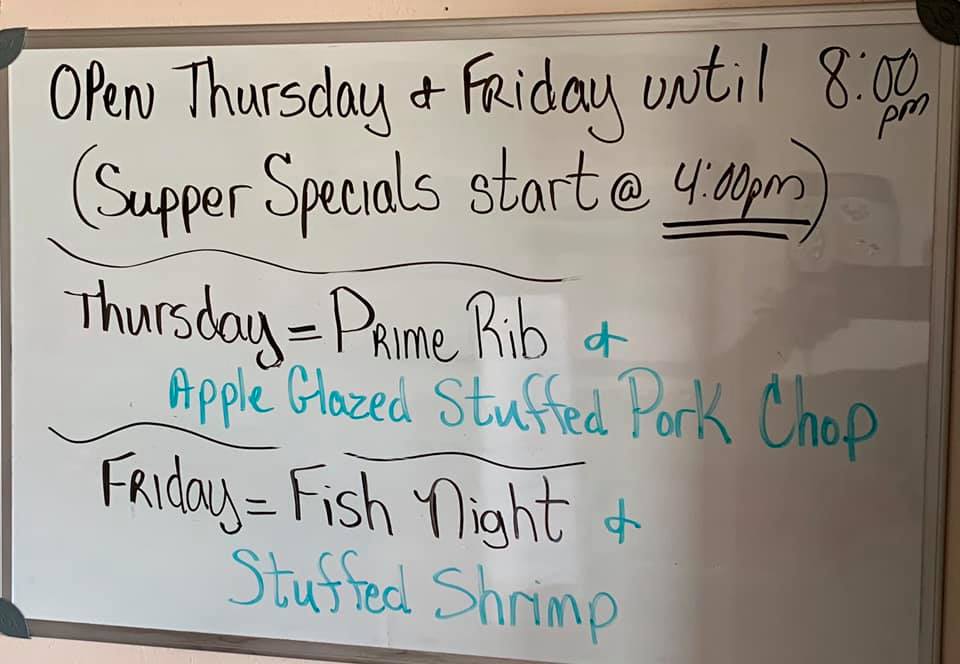 Open Thursday & Friday until 8:00 pm
(Supper Specials start @ 4:00pm)
Thursday = Prime Rib &
Apple Glazed Stuffed Pork Chop
Friday = Fish Night &
Stuffed Shrimp